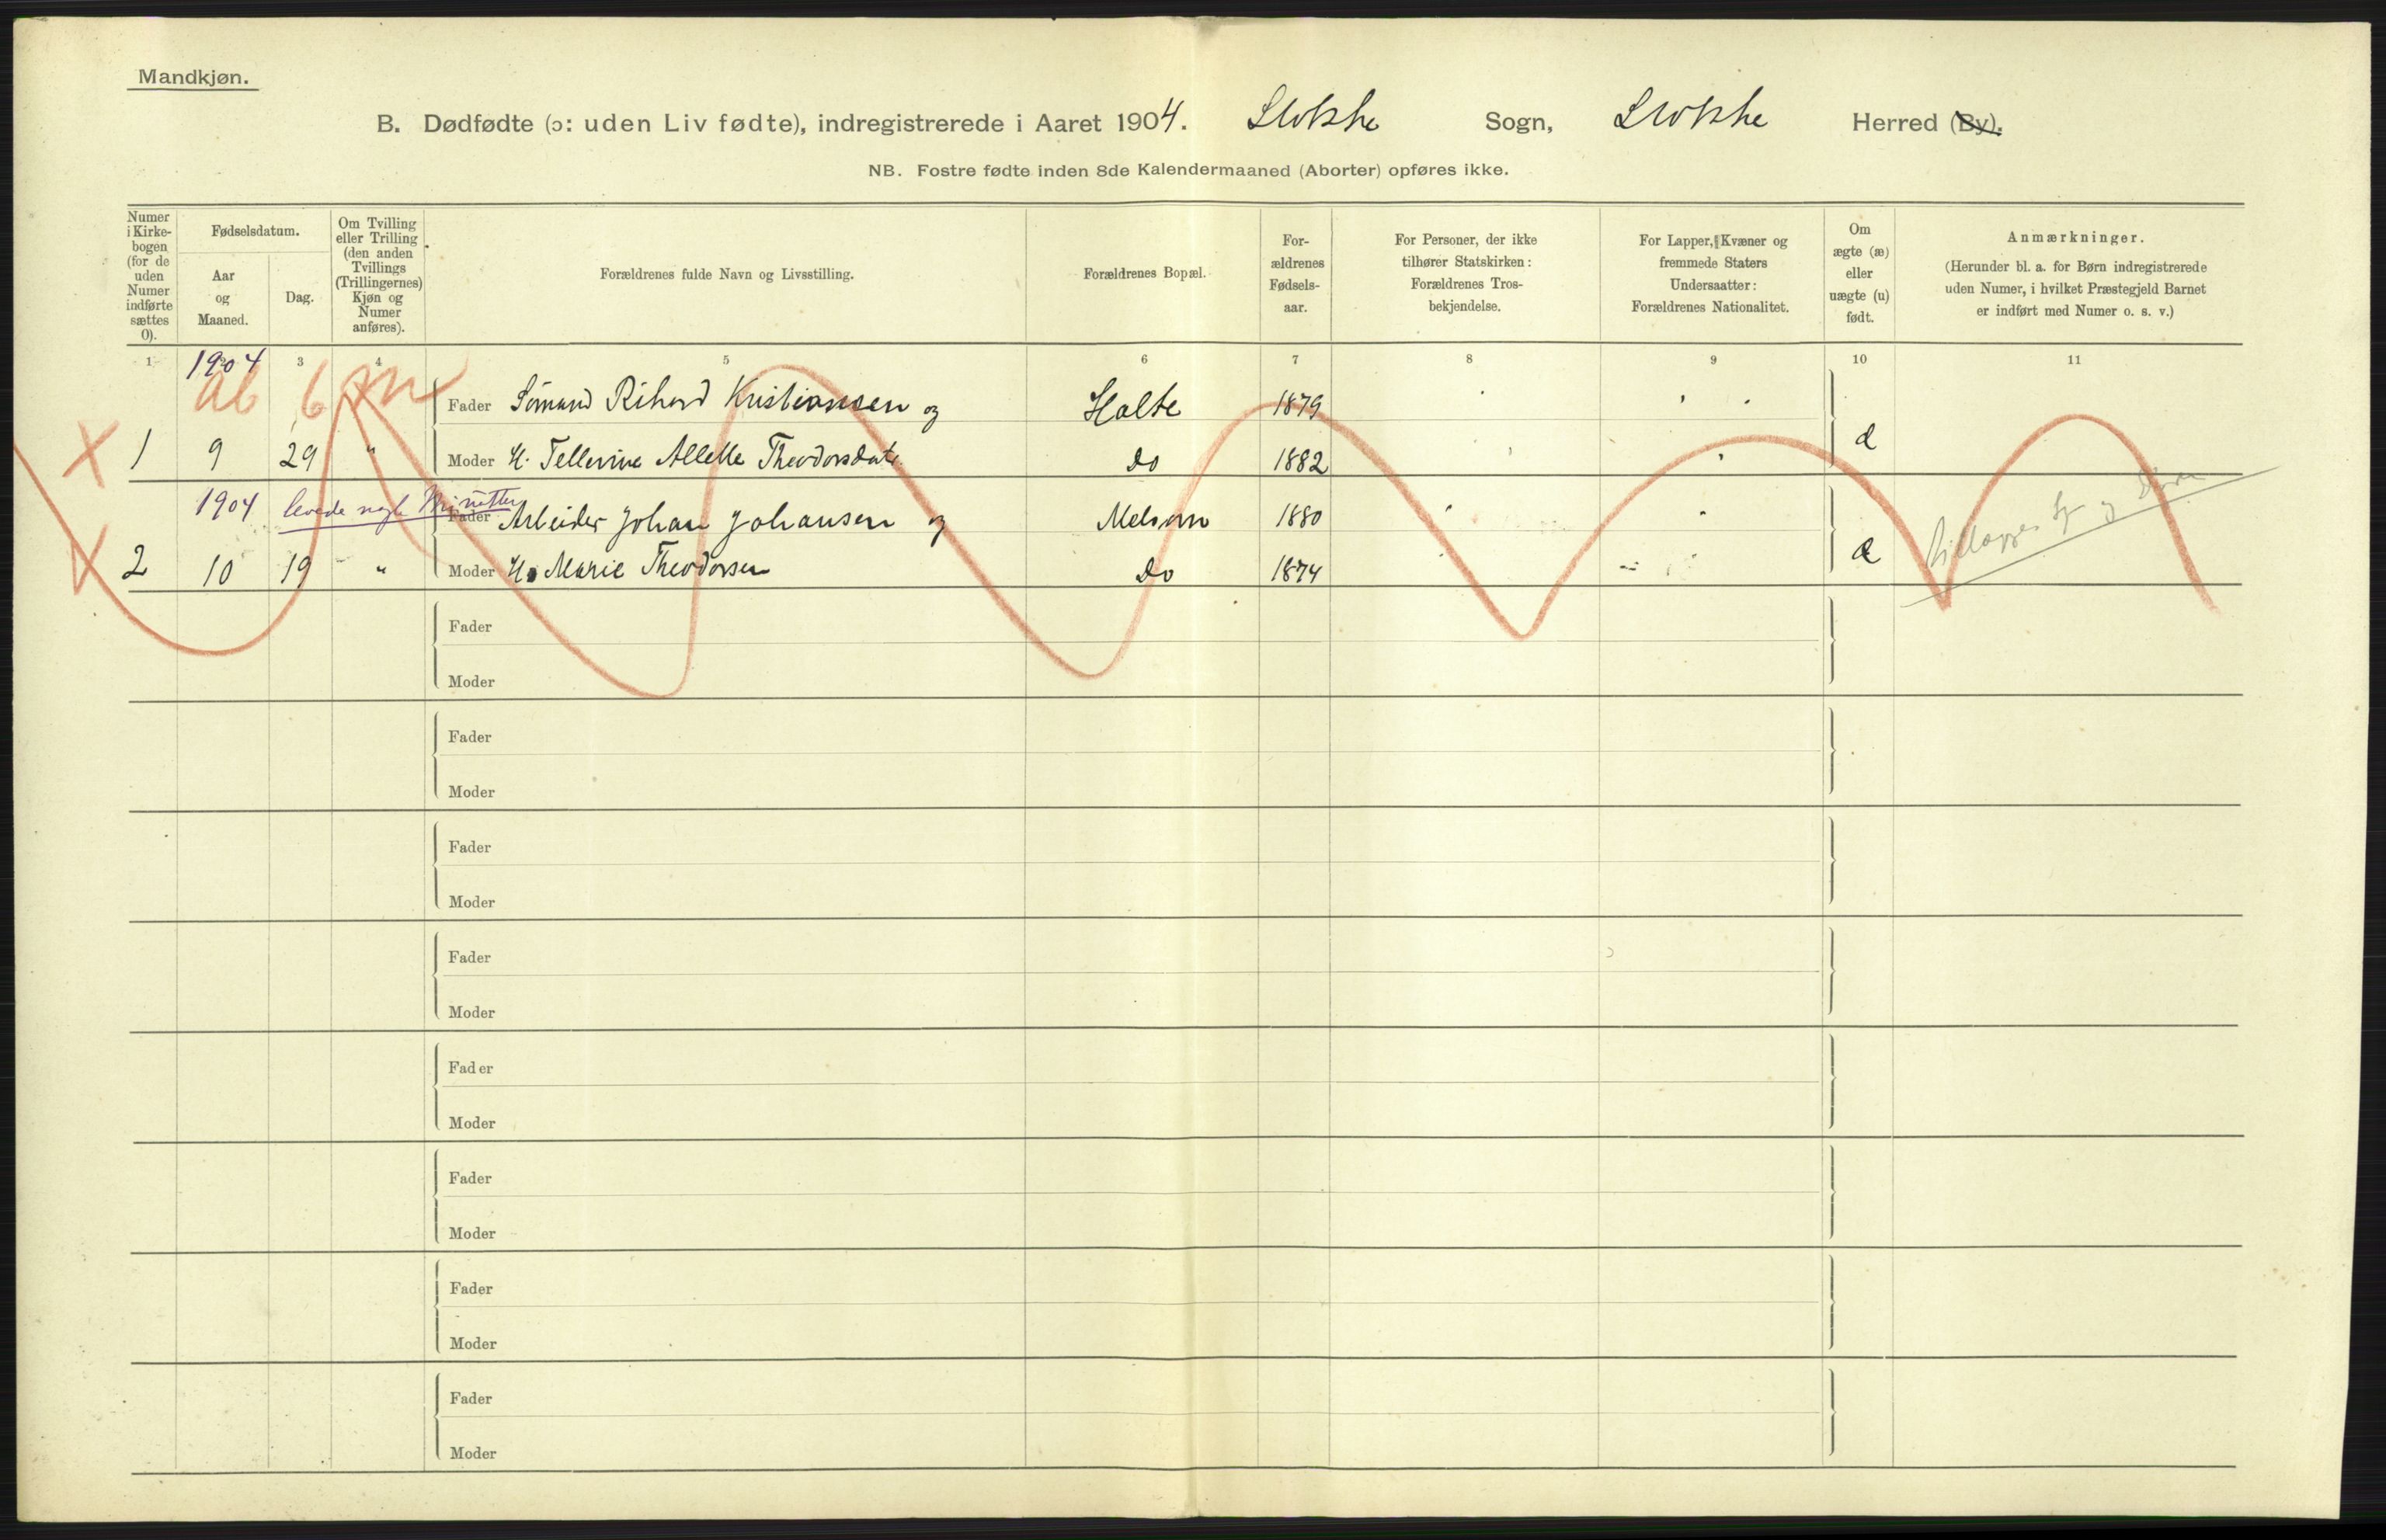 Mandkjøn.
B. Dødfødte (ɔ: uden Liv fødte), indregistrerede i Aaret 1904. Stokke Sogn, Stokke Herred (By).
NB. Fostre fødte inden 8de Kalendermaaned (Aborter) opføres ikke.
Numer i Kirke-bogen (for de uden Numer indførte sættes 0).
Fødselsdatum.
Aar og Maaned.
Dag.
Om Tvilling eller Trilling (den anden Tvillings (Trillingernes) Kjøn og Numer anføres).
Forældrenes fulde Navn og Livsstilling.
Forældrenes Bopæl.
For-ældrenes Fødsels-aar.
For Personer, der ikke tilhører Statskirken: Forældrenes Tros-bekjendelse.
For Lapper, Kvæner og fremmede Staters Undersaatter: Forældrenes Nationalitet.
Om ægte (æ) eller uægte (u) født.
Anmærkninger.
(Herunder bl. a. for Børn indregistrerede uden Numer, i hvilket Præstegjeld Barnet er indført med Numer o. s. v.)
1 2 3 4 5 6 7 8 9 10 11
1904
Ab 6 m
Fader Sømand Rihard Kristiansen og Holte 1879
1 9 29 " Moder H. Tellevine Theodorsdatt. do 1882 æ
1904 levede nogle Minutter
Fader Arbeider Johan Johansen og Melsom 1880
2 10 19 " Moder H. Marie Theodorsen do 1874 æ
og
Fader
Moder
Fader
Moder
Fader
Moder
Fader
Moder
Fader
Moder
Fader
Moder
Fader
Moder
Fader
Moder